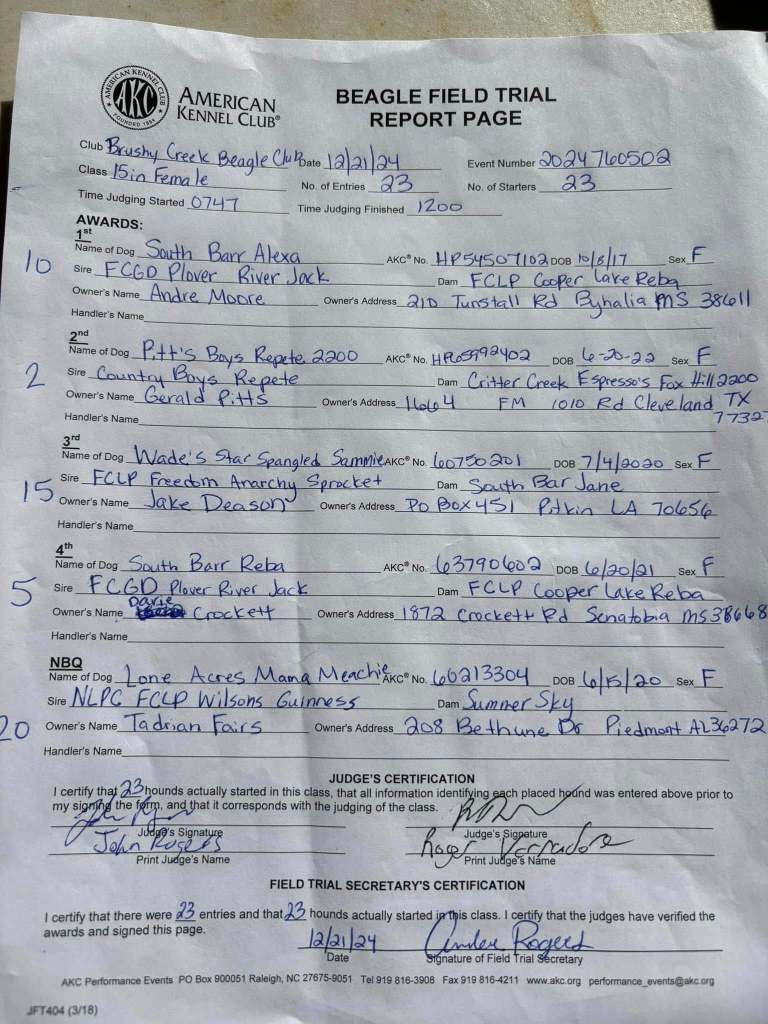 AMERICAN KENNEL CLUB
AKC
FOUNDED 1884
AMERICAN
KENNEL CLUB®
BEAGLE FIELD TRIAL
REPORT PAGE
Club Brushy Creek Beagle Club Date 12/21/24 Event Number 2024760502
Class 15in Female No. of Entries 23 No. of Starters 23
Time Judging Started 0747 Time Judging Finished 1200
AWARDS:
1st
10 Name of Dog South Barr Alexa AKC® No. HP54507102 DOB 10/8/17 Sex F
Sire FCGD Plover River Jack Dam FCLP Cooper Lake Reba
Owner's Name Andre Moore Owner's Address 210 Tunstall Rd Byhalia MS 38611
Handler's Name
2nd
Name of Dog Pitt's Boys Repete 2200 AKC® No. DOB 6-20-22 Sex F
2 Sire Country Boys Repete Dam Critter Creek Espresso's Fox Hill 2200
Owner's Name Gerald Pitts Owner's Address 1664 FM 1010 Rd Cleveland TX
7732
Handler's Name
3rd
Name of Dog Wade's Star Spangled Sammie AKC® No. 60750201 DOB 7/4/2020 Sex F
15 Sire FCLP Freedom Anarchy Sprocket Dam South Bar Jane
Owner's Name Jake Deason Owner's Address PO Box 451 Pitkin LA 70656
Handler's Name
4th
Name of Dog South Barr Reba AKC® No. 63790602 DOB 6/20/21 Sex F
5 Sire FCGD Plover River Jack Dam FCLP Cooper Lake Reba
Owner's Name Crockett Owner's Address 1872 Crockett Rd Senatobia MS 38668
Handler's Name
NBQ
Name of Dog Lone Acres Mama Meachie AKC® No. 60213304 DOB 6/15/20 Sex F
Sire NLPC FCLP Wilsons Guinness Dam Summer Sky
20 Owner's Name Tadrian Fairs Owner's Address 208 Bethune Dr Piedmont AL 36272
Handler's Name
JUDGE'S CERTIFICATION
I certify that 23 hounds actually started in this class, that all information identifying each placed hound was entered above prior to
my signing the form, and that it corresponds with the judging of the class.
Judge's Signature Judge's Signature
John Rogers Roger Varnadore
Print Judge's Name Print Judge's Name
FIELD TRIAL SECRETARY'S CERTIFICATION
I certify that there were 23 entries and that 23 hounds actually started in this class. I certify that the judges have verified the
awards and signed this page.
12/21/24 Rogers
Date Signature of Field Trial Secretary
AKC Performance Events PO Box 900051 Raleigh, NC 27675-9051 Tel 919 816-3908 Fax 919 816-4211 www.akc.org performance_events@akc.org
JFT404 (3/18)